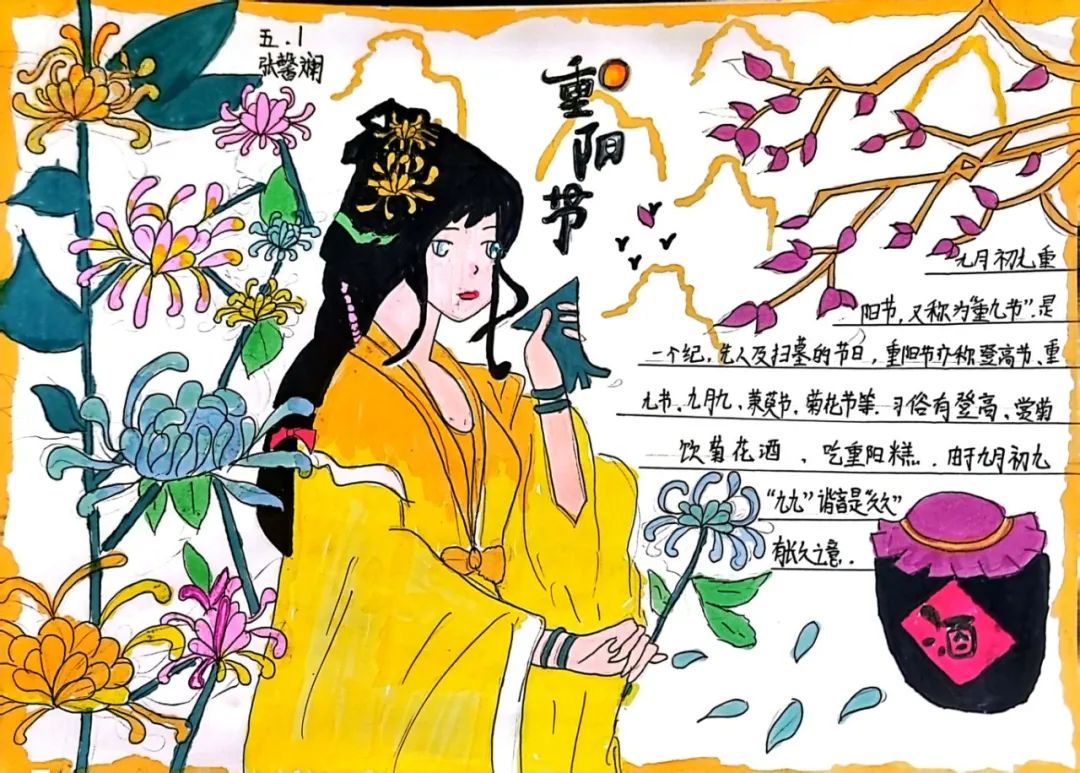 五.1
张馨斓
重阳节
九月初九重
阳节，又称为“重九节”.是
一个纪，先人及扫墓的节日，重阳节亦称登高节、重
九书、九月九、茱萸节.菊花节等.习俗有登高、赏菊
饮菊花酒、吃重阳糕.由于九月初九
“九九”谐音是“久久”
有长久之意.
酒